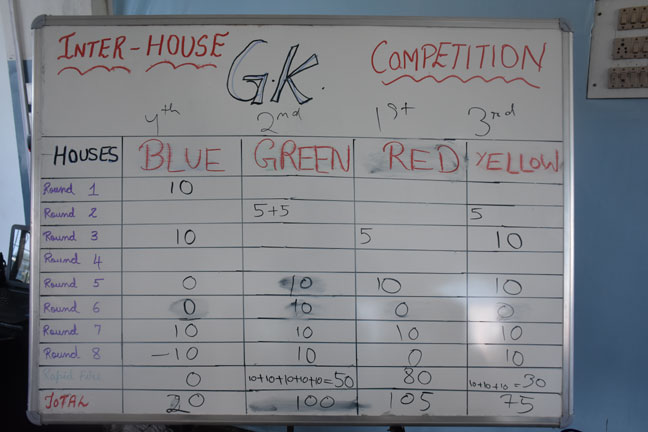 INTER-HOUSE G.K. COMPETITION
4th 2nd 1st 3rd
HOUSES BLUE GREEN RED YELLOW
Round 1 10
Round 2 5+5 5
Round 3 10 5 10
Round 4
Round 5 0 10 10 10
Round 6 0 10 0 0
Round 7 10 10 10 10
Round 8 -10 10 0 10
Rapid Fire 0 10+10+10+10+10=50 80 10+10+10=30
TOTAL 20 100 105 75